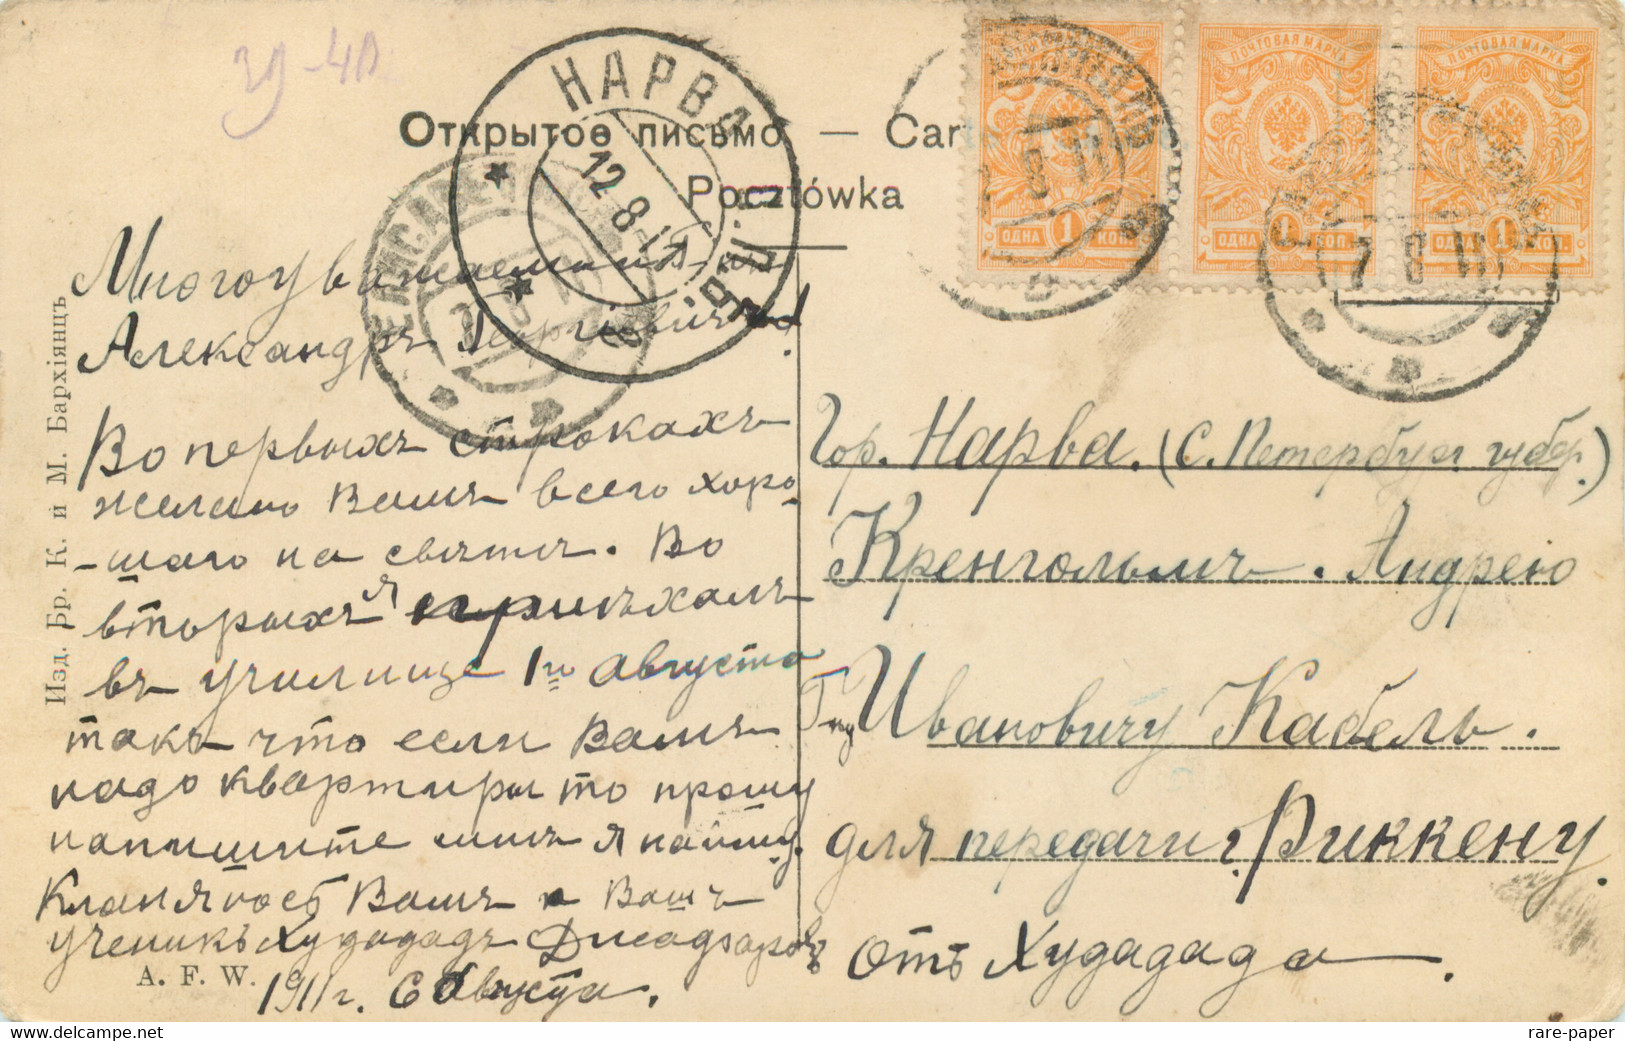 зд-40
Открытое письмо — Cart
Pocztówka
НАРВА
12.8.11
ПОЧТОВАЯ МАРКА
ПОЧТОВАЯ МАРКА
ОДНА 1 КОП.
ОДНА 1 КОП.
ОДНА 1 КОП.
7 8 11
Многоуважаемый
Александръ Георгіевичъ!
Во первыхъ строкахъ
желаю Вамъ всего хоро-
-шаго на свѣтѣ. Во
вторыхъ я пріѣхалъ
въ училище 1го августа
такъ что если Вамъ
надо квартиры то прошу
напишите мнѣ я найму.
Кланяюсь Вамъ Вашъ
ученикъ Худададъ
1911 г. 6 Августа.
Гор. Нарва. (С. Петербург губер.)
Кренгольмъ. Андрею
Ивановичу Кабель.
для передачи г. Риккену.
Отъ Худадада.
Изд. Бр. К. и М. Бархіянцъ
A. F. W.
rare-paper